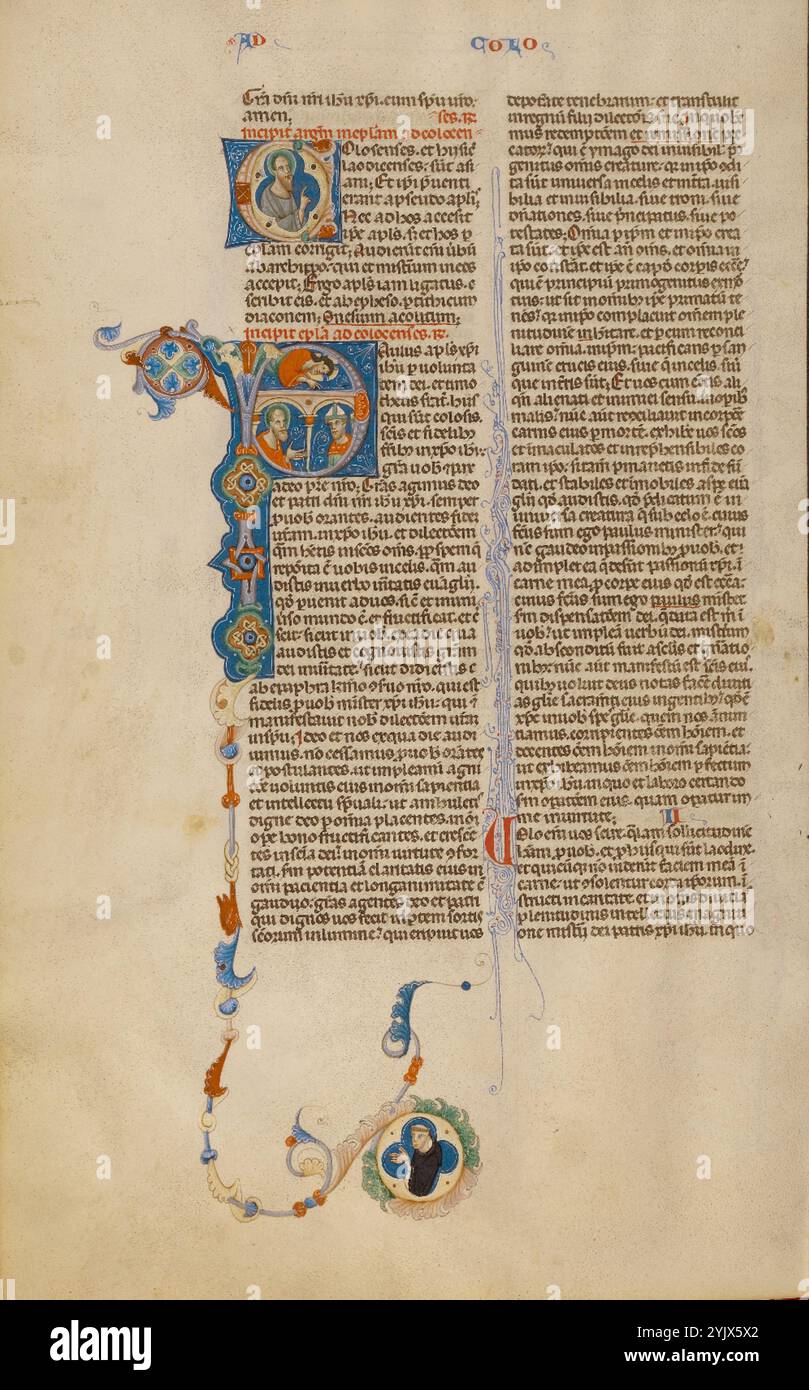 AD COLO
Gra dni nri ihu xpi. cum spu uro.
amen. ses. R.
incipit argm in eplam ad colocen
Colosenses. et hi sic
laodicenses. sut asi
ani; Et ipi pventi
erant a pseudo aplis;
Nec ad hos accessit
ipe apls. s; et hos p
eplam corrigit; Audierat eni ubu
ab archippo. qui et misterium in eos
accepit; Ergo apls iam ligatus. s
cribit eis. ab epheso. p titbicum
diaconem; Onesimu acolitum;
incipit epla ad colocenses. R.
Paulus apls xpi
ihu p volunta
tem dei. et timo
theus frat. hiis
qui sut colosis.
scis et fidelib
frib in xpo ihu.
gra uob et pax
a deo pre nro; Gras agimus deo
et patri dni nri ihu xpi. semper
p uob orantes. audientes fidei
uram. in xpo ihu. et dilectoem
qm hetis in scos oms. pp spem q
reposita e uobis in celis. qm au
distis in uerbo ueritatis euaglii.
qd puenit ad uos. sic et in uni
uso mundo e. et fructificat. et c
audistis et cognouistis gram
dei in ueritate. sicut didicistis
fidelis p uob mister xpi ihu. qui
manifestauit nob dilectoem uram
in spu; Ideo et nos ex qua die audi
uimus. no cessamus p uob orates
et postulantes. ut impleamini agni
coe voluntis eius in omi sapientia
et intellectu spuali. ut ambuletis
digne deo p omia placentes. in oi
ope bono fructificantes. et cresce
tes in scia dei. in omi uirtute 9for
tati. sm potentia claritatis eius in
omi paciencia et longanimitate c
gaudio. gras agentes deo et patri
qui dignos uos fecit in ptem sortis
scorum in lumine. qui eripuit uos
de potate tenebrarum. et transtulit
in regnu filii dilectois sue. in quo he
mus redemptoem et
catorum. qui e ymago dei inuisibil. p
genitus omis creature. qr in ipo 9di
ta sut uniuersa in celis et in tra. uisi
bilia et inuisibilia. siue troni. siue
dnationes. siue pncipatus. siue po
testates; Omia p ipm et in ipo crea
ta sut. et ipe est an oms. et omia in
ipo constat. et ipe e caput corpis ecce.
qui e principiu primogenitus ex mo
tuis. ut sit in omib ipe primatu te
nes. qr in ipo complacuit omem ple
nitudine inhitare. et p eum reconci
liare omia. in ipm. pacificans p san
guine crucis eius. siue que in celis. siue
que in tris sut; Et uos cum eetis ali
qn alienati et inimici sensu. in opib
malis. nuc aut reconciliauit in corpore
carnis eius p morte. exhibe uos scos
et imaculatos et inrephensibiles co
ram ipo. si tam pmanetis in fide fu
dati. et stabiles et imobiles a spe eua
glii qd audistis. qd pdicatum e in
uniuersa creatura q sub celo e. cuius
fcus sum ego paulus minister. qui
nuc gaudeo in passionib p uob. et
adimpleo ea q desut passionu xpi. i
carne mea. p corpe eius qd est eccea.
cuius fcus sum ego paulus mister.
sm dispensatoem dei. q data est m i
uob. ut implea uerbu dei. misterium
qd absconditu fuit a sclis et gnatio
nib. nuc aut manifestu est scis eius.
quib uoluit deus notas face diuiti
as glie sacramti eius in gentib. qd e
xps. in uob spes glie. quem nos annun
tiamus. corripientes oem hoiem. et
docentes oem hoiem in omi sapientia.
ut exhibeamus oem hoiem pfectum
in xpo ihu. in quo et laboro certando
sm opatoem eius. quam opatur in
me in uirtute; II
Uolo eni uos scire. qualem sollicitudine
heam p uob. et p hiis qui sut laodicie.
et quicuq no uiderut faciem mea i
carne. ut 9solentur corda iporum. i
structi in caritate. et in omis diuitias
plenitudinis intellectus. in agniti
one misterii dei patris xpi ihu. in quo
alamy
Image ID: 2YJX5X2
www.alamy.com